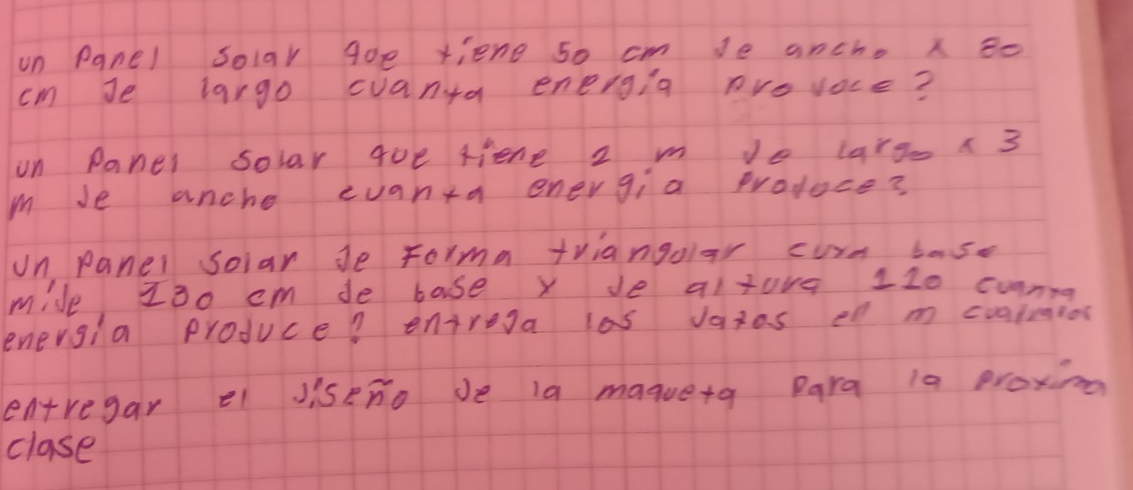 un Panel Solar que tiene 50 cm de ancho x 80
cm de largo cuanta energía produce?
un Panel solar que tiene 2 m de largo x 3
m de ancho cuanta energia Produce?
un Panel solar de Forma triangular cuya base
mide 130 cm de base y de altura 110 cuanta
energía Produce? entrega los datos en m cuadrados
entregar el diseño de la maqueta Para la proxima
clase